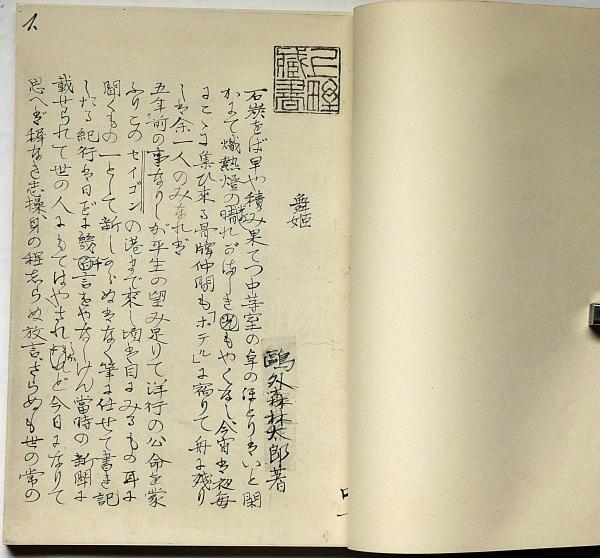 舞姫
鷗外森林太郎著
石炭をば早や積み果てつ中等室の卓のほとりはいと閑
かにて熾熱燈の晴れがましきもやくなし今宵は夜毎
にこゝに集ひ来る骨牌仲間も「ホテル」に宿りて舟に残り
しは余一人のみなれば
五年前の事なりしが平生の望み足りて洋行の公命を蒙
ふりこのセイゴンの港まで来し頃は目にみるもの耳に
聞くもの一として新しからぬはなく筆に任せて書き記
したる紀行は日ごとに幾千言をやなしけん當時の新聞に
載せられて世の人にもてはやされしかど今日になりて
思へば穉なき志操身の程志らぬ放言さらぬも世の常の